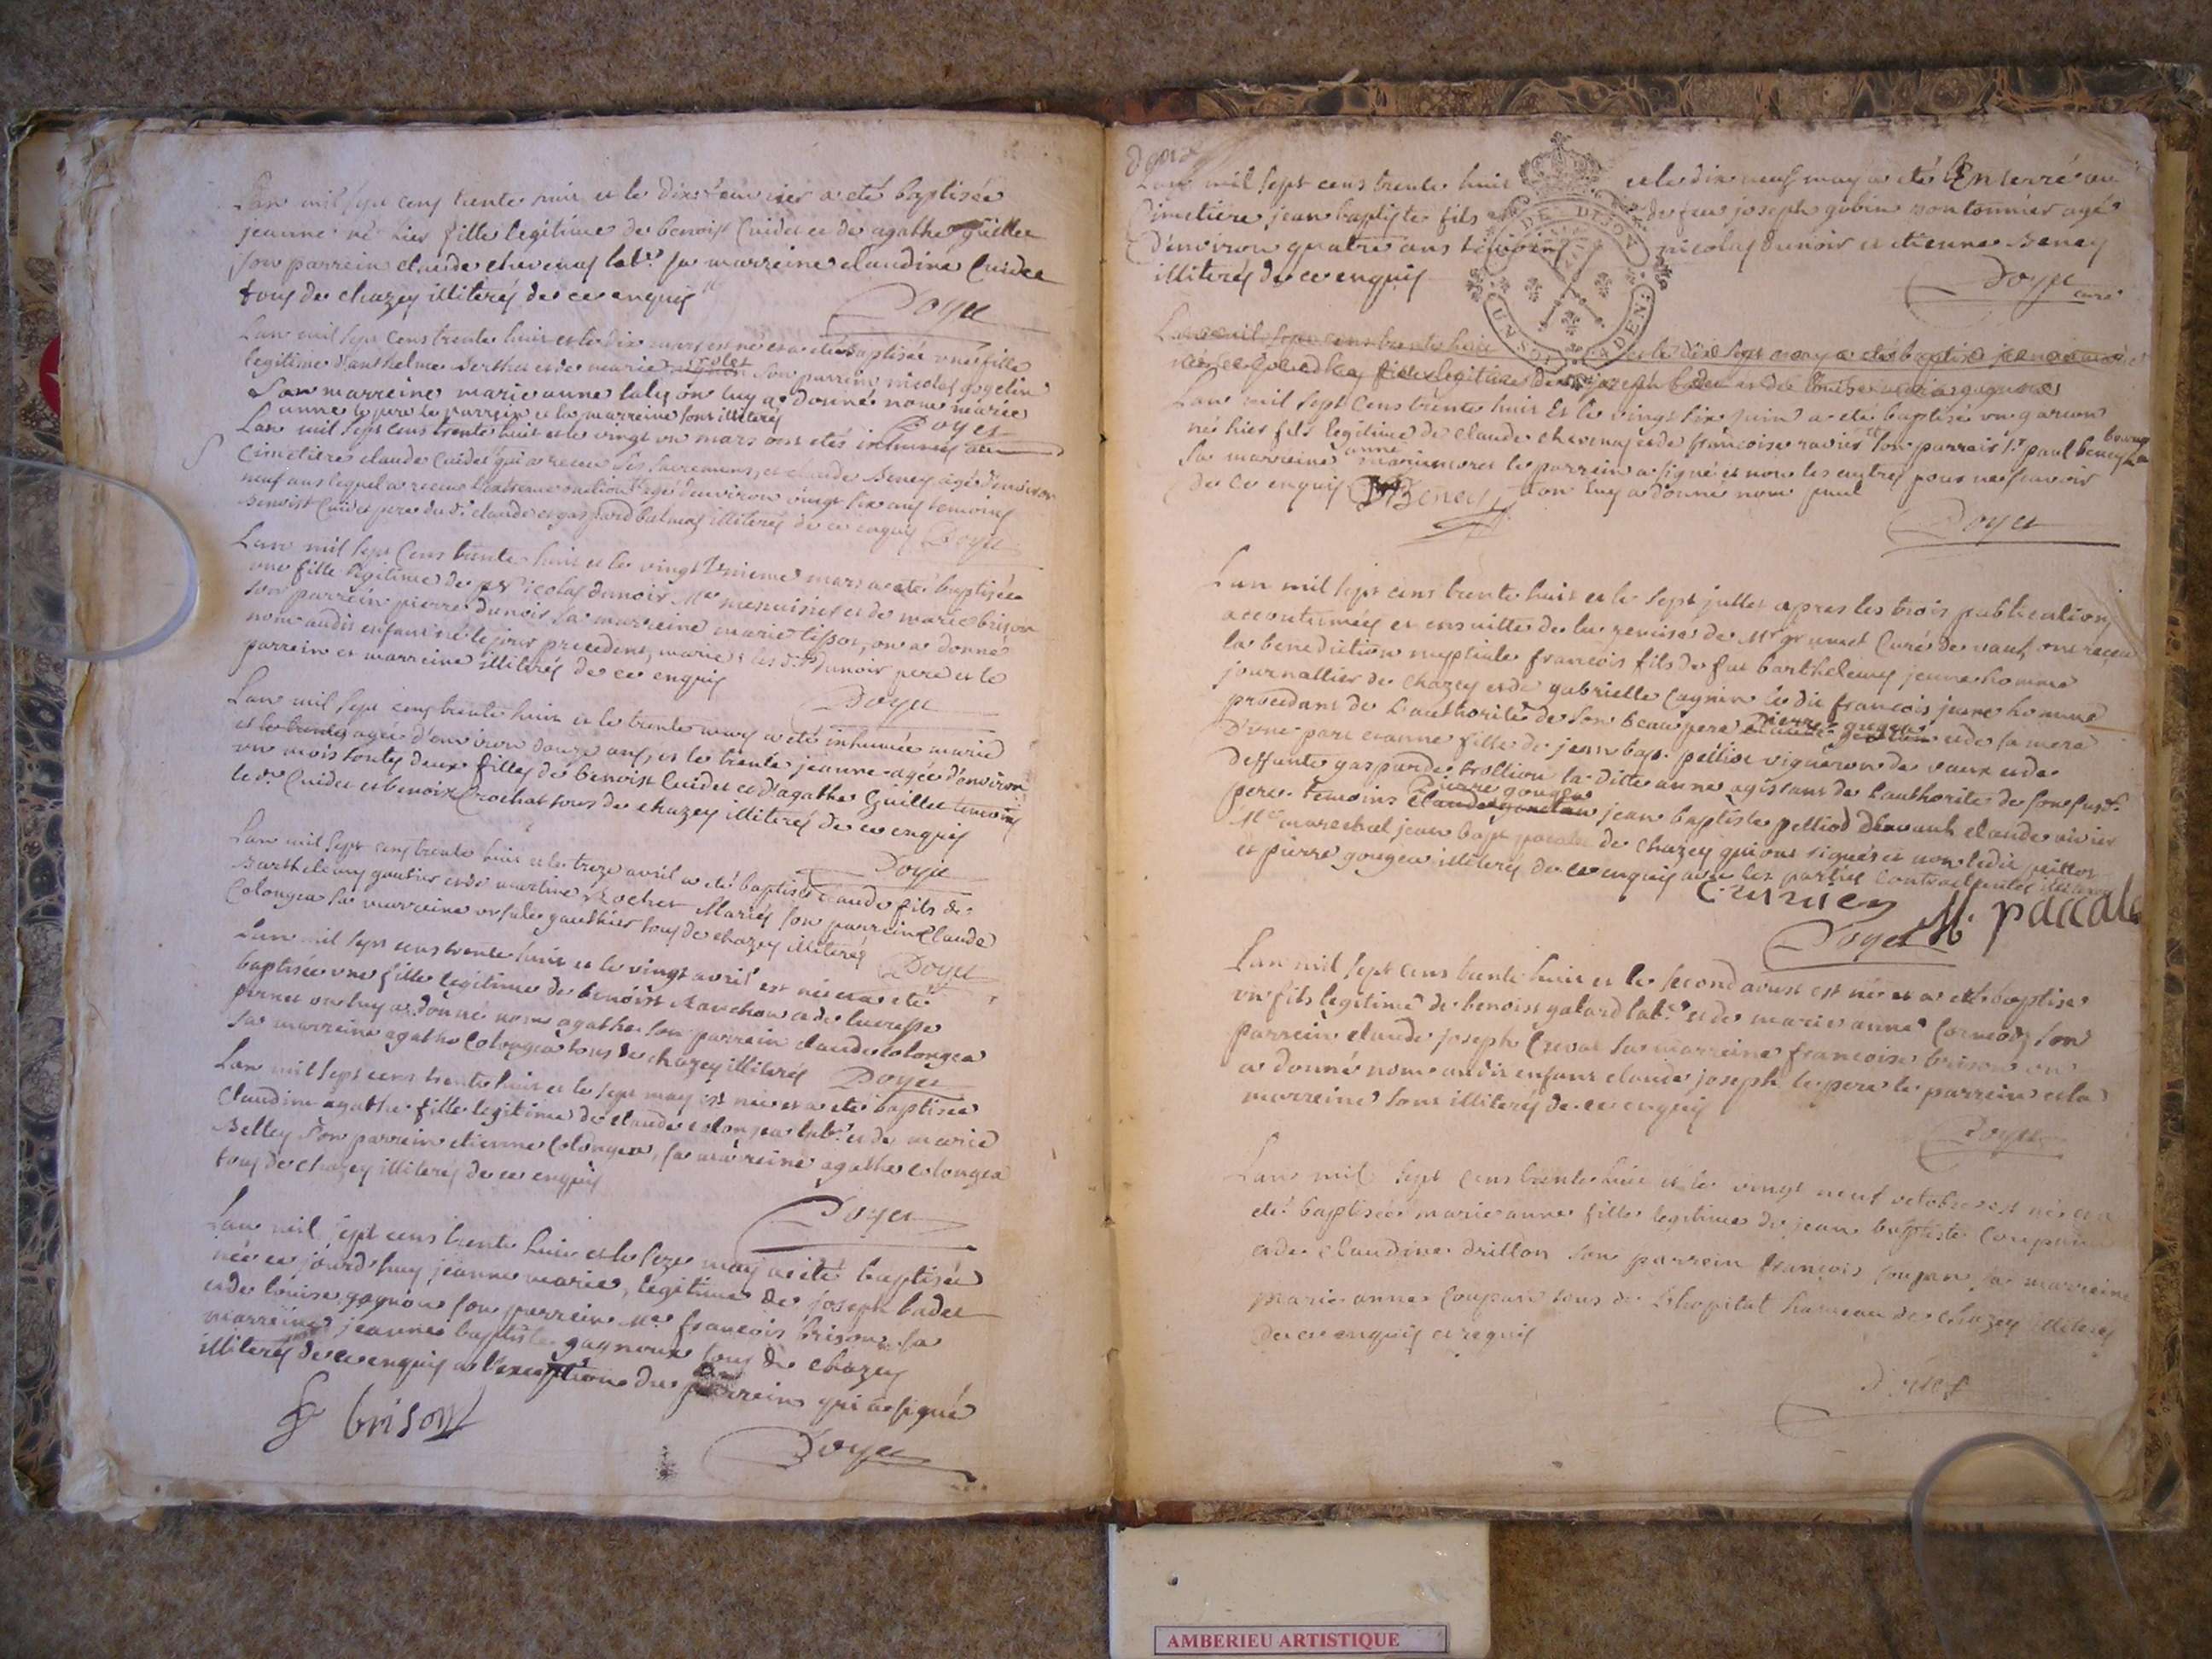 Lan mil sept cens trente huit et le dix feuvrier a eté baptisée
jeanne né hier fille legitime de benoist Cuidet et de agathe guillet
son parrein claude chevenay lab.r sa marreine claudine Cuidet
tous de chazey illiterés de ce enquis
Doyet
Lan mil sept cens trente huit et le dix mars est né et a eté baptisée une fille
legitime d'anthelme berthet et de marie rolet son parrein nicolas gogelin
Sa marreine marie anne laly on luy a donné nom marie
anne le pere le parrein et la marreine sont illiterés
Doyet
Lan mil sept cens trente huit et le vingt un mars ont etés inhumés au
Cimetiere claude Cuidet qui a receu les sacremens, et claude Beney agé d'environ
neuf ans lequel a receu l'extreme onction agé d'environ vingt six ans temoins
Benoist Cuidet pere du dt claude et gaspard balmay illiterés de ce enquis Doyet
Lan mil sept cens trente huit et le vingt unieme mars a eté baptisée
une fille legitime de nicolas dunoir Me menuisier et de marie brison
son parrein pierre dunoir sa marreine marie tissot, on a donné
nom audit enfant né le jour precedent, marie les dts Dunoir pere et le
parrein et marreine illiterés de ce enquis
Doyet
Lan mil sept cens trente huit et le trente mars a eté inhumée marie
et le trente agée d'environ douze ans, et le trente jeanne agée d'environ
un mois toutes deux filles de benoist Cuidet et d'agathe Guillet temoins
le dt Cuidet et benoix Crochat tous de chazey illiterés de ce enquis
Doyet
Lan mil sept cens trente huit et le treze avril a eté baptisé claude fils de
Barthelemy gautier et de martine Rochet Mariés son parrein Claude
Colongea sa marreine ursule gauthier tous de chazey illiterés
Doyet
Lan mil sept cens trente huit et le vingt avril est née et a eté
baptisée une fille legitime de benoist Ranchon et de lucresse
pernet on luy a donné nom agathe son parrein claude colongea
sa marreine agathe Colongea tous de chazey illiterés Doyet
Lan mil sept cens trente huit et le sept may est née et a eté baptisée
Claudine agathe fille legitime de claude colongea lab.r et de marie
Belley son parrein etienne Colongea, sa marreine agathe colongea
tous de chazey illiterés de ce enquis
Doyet
Lan mil sept cens trente huit et le seze may a eté baptisée
née ce jourd'huy jeanne marie, legitime de joseph badet
et de louise gagnou son parrein Me françois brison sa
marreine jeanne baptiste gagnoux tous de chazey
illiterés de ce enquis a l'exeption du parrein qui a signé
fr brison
Doyet
Lan mil sept cens trente huit et le dix neuf may a eté Enterré au
Cimetiere jean baptiste fils de feu joseph gobin pontonnier agé
d'environ quatre ans temoins nicolas dunoir et etienne Beney
illiterés de ce enquis
Doyet curé
DE DIJON
UN SOL
Lan mil sept cens trente huit et le dix sept may a eté baptisé jeanne marie
née ce jourd'huy fille legitime de joseph badet et de louise
Lan mil sept Cens trente huit et le vingt six juin a eté baptisé un garçon
né hier fils legitime de claude chevenay et de françoise ravier son parrein Sr paul beney
Sa marreine anne le parrein a signé et non les autres pour ne sçavoir
de ce enquis P Beney, on luy a donné nom paul
Doyet
Lan mil sept cens trente huit et le sept juillet apres les trois publications
accoutumées et ensuitte de la remise de Mr grumet Curé de vaux ont receu
la benediction nuptiale françois fils de feu barthelemy jeune homme
journallier de chazey et de gabrielle Cagnin le dit françois jeune homme
procedant de l'authorité de son beau pere pierre gougea et de sa mere
D'une part et anne fille de jean bap. pelliot vigneron de vaux et de
deffunte gasparde trollion la ditte anne agissant de l'authorité de son susdt
pere temoins pierre gougea jean baptiste pelliod de vaux claude vivier
Me marechal jean bapt pacale de chazey qui ont signés et non ledit
et pierre gougea illiterés de ce enquis avec les parties contractantes
C vivier
M. paccale
Doyet
Lan mil sept cens trente huit et le second aoust est né et a eté baptisé
un fils legitime de benoist galard lab.r et de marie anne Cormoz, son
parrein claude joseph Crevat sa marreine françoise brison on
a donné nom audit enfant claude joseph le pere le parrein et la
marreine sont illiterés de ce enquis
Doyet
Lan mil sept cens trente huit et le vingt neuf octobre est née et a
eté baptisée marie anne fille legitime de jean baptiste Coupan
et de claudine drillon son parrein françois coupan, sa marreine
marie anne Coupan tous de l'hopital hameau de chazey illiterés
de ce enquis et requis
Doyet
AMBERIEU ARTISTIQUE